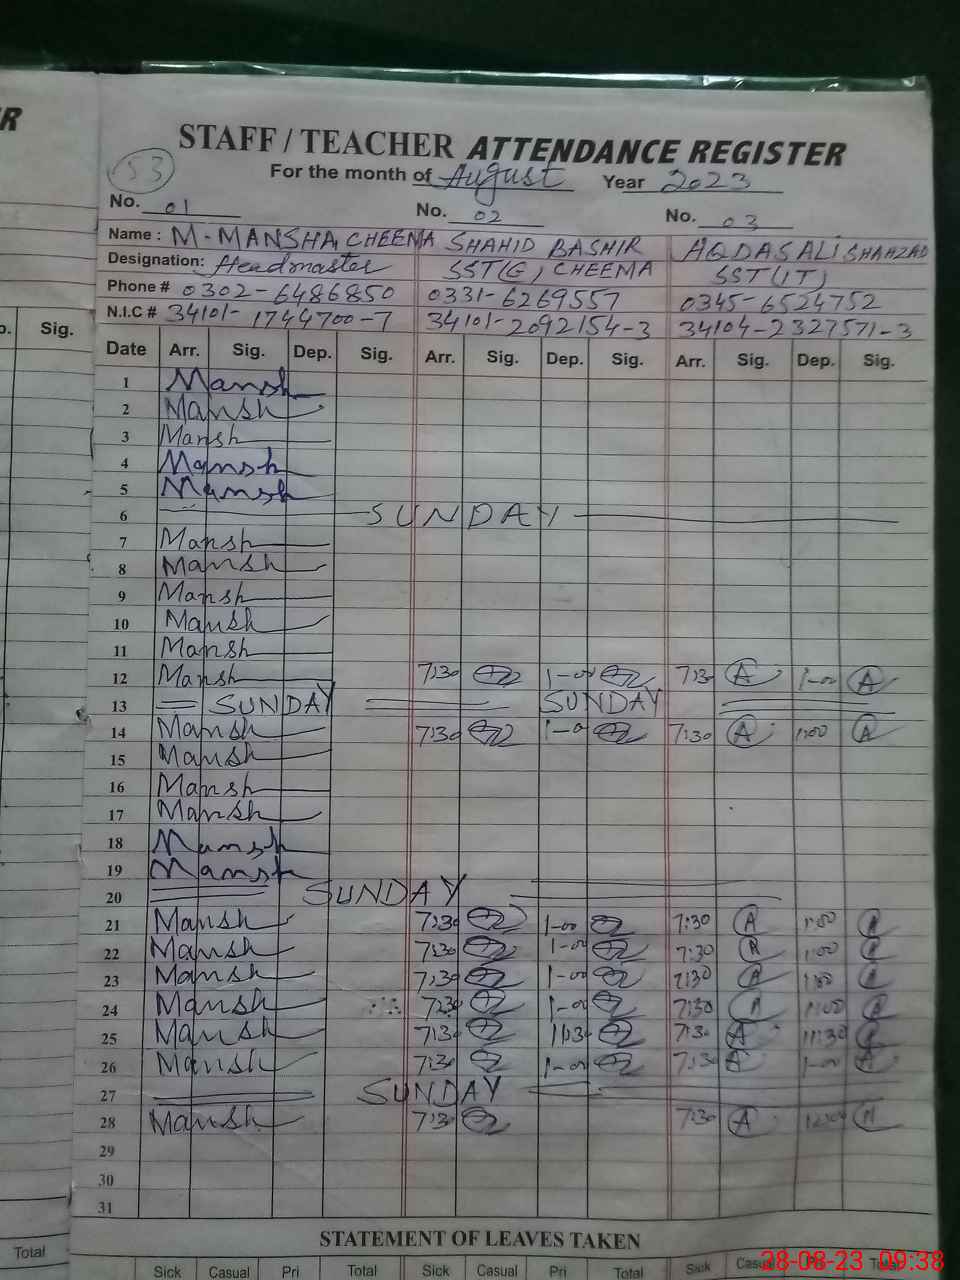 R
STAFF / TEACHER ATTENDANCE REGISTER
53
For the month of August Year 2023
No. 01 No. 02 No. 03
Name : M-MANSHA CHEEMA SHAHID BASHIR AQDAS ALI SHAHZAD
Designation: Headmaster SST(G) CHEEMA SST(IT)
Phone # 0302-6486850 0331-6269557 0345-6524752
N.I.C # 34101-1744700-7 34101-2092154-3 34104-2327571-3
Sig. Date Arr. Sig. Dep. Sig. Arr. Sig. Dep. Sig. Arr. Sig. Dep. Sig.
1 Mansh
2 Mansh
3 Mansh
4 Mansh
5 Mansh
6 SUNDAY
7 Mansh
8 Mansh
9 Mansh
10 Mansh
11 Mansh
12 Mansh 7:30 1-00 7:30 A 1-00 A
13 SUNDAY SUNDAY
14 Mansh 7:30 1-0 7:30 A 1:00 A
15 Mansh
16 Mansh
17 Mansh
18 Mansh
19 Mansh
20 SUNDAY
21 Mansh 7:30 1-00 7:30 A 1:00 A
22 Mansh 7:30 1-00 7:30 A 1:00 A
23 Mansh 7:30 1-00 7:30 A 1:00 A
24 Mansh 7:30 1-00 7:30 A 1:00 A
25 Mansh 7:30 11:30 7:30 A 11:30 A
26 Mansh 7:30 1-00 7:30 A 1-00 A
27 SUNDAY
28 Mansh 7:30 7:30 A A
29
30
31
STATEMENT OF LEAVES TAKEN
Total Sick Casual Pri Total Sick Casual Pri Total Sick Casual Total
28-08-23 09:38